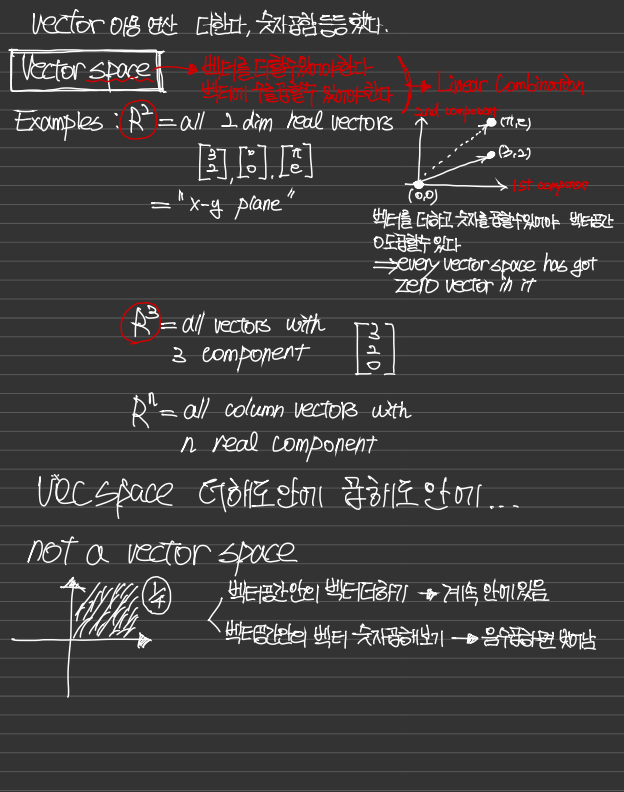 vector 이용 연산 더한다, 숫자곱함 등등 했다.
Vector space → 벡터를 더할수있어야한다
벡터에 수를곱할수 있어야한다 → Linear Combination
Examples : R² = all 2 dim real vectors
[3 2], [0 0], [π e]
= "x-y plane"
2nd component
(π,e)
(3,2)
(0,0)
1st component
벡터를 더하고 숫자를 곱할수있어야 벡터공간
0도곱할수 있다
⇒ every vector space has got
zero vector in it
R³ = all vectors with
3 component
[3 2 0]
Rⁿ = all column vectors with
n real component
Vec space 더해도안에 곱해도안에...
not a vector space
1/4
벡터공간안의 벡터더하기 → 계속 안에있음
벡터공간안의 벡터 숫자곱해보기 → 음수곱하면 벗어남